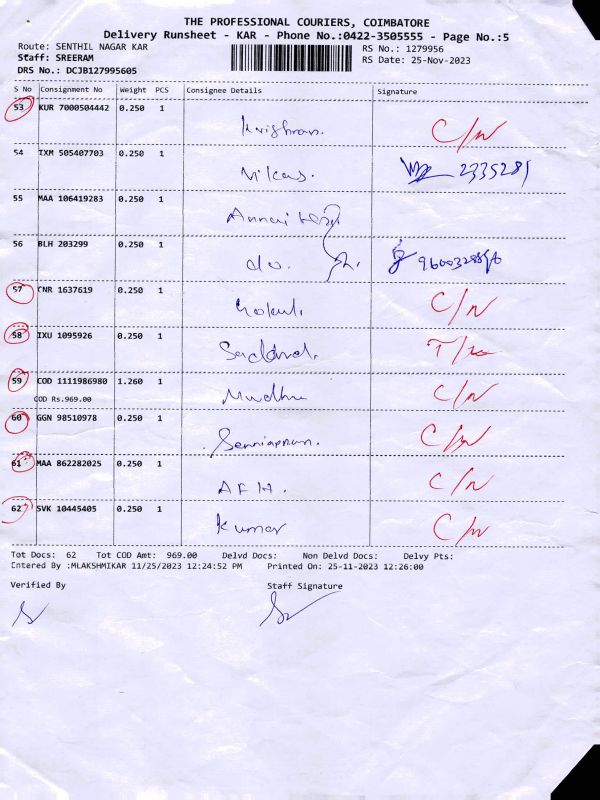 THE PROFESSIONAL COURIERS, COIMBATORE
Delivery Runsheet - KAR - Phone No.:0422-3505555 - Page No.:5
Route: SENTHIL NAGAR KAR RS No.: 1279956
Staff: SREERAM RS Date: 25-Nov-2023
DRS No.: DCJB127995605
S No Consignment No Weight PCS Consignee Details Signature
53 KUR 7000504442 0.250 1
Krishnan. C/N
54 IXM 505407703 0.250 1
Vikas. 2335281
55 MAA 106419283 0.250 1
Annai
56 BLH 203299 0.250 1
do.
57 CNR 1637619 0.250 1
Gokul. C/N
58 IXU 1095926 0.250 1
59 COD 1111986980 1.260 1
COD Rs.969.00 Madhu C/N
60 GGN 98510978 0.250 1
C/N
61 MAA 862282025 0.250 1
A F H. C/N
62 SVK 10445405 0.250 1
Kumar C/N
Tot Docs: 62 Tot COD Amt: 969.00 Delvd Docs: Non Delvd Docs: Delvy Pts:
Entered By :MLAKSHMIKAR 11/25/2023 12:24:52 PM Printed On: 25-11-2023 12:26:00
Verified By Staff Signature